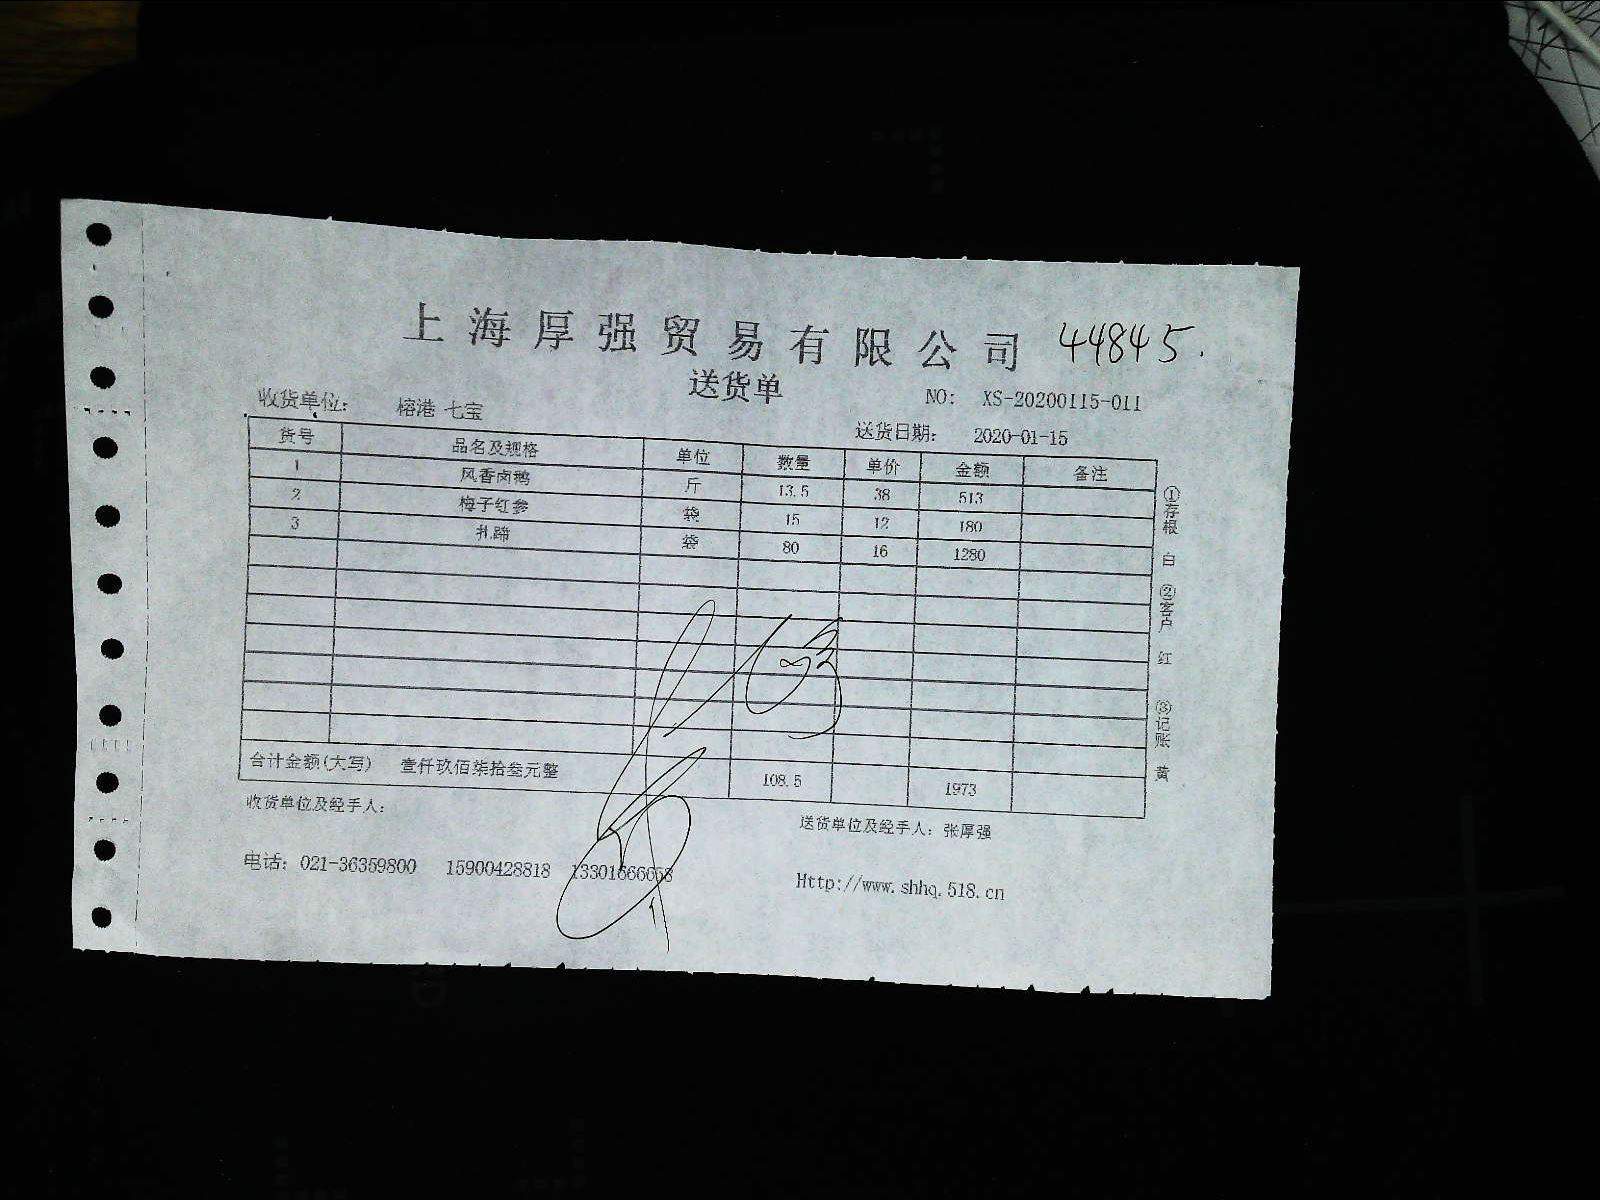 上海厚强贸易有限公司 44845.
送货单
NO: XS-20200115-011
收货单位: 榕港 七宝
送货日期: 2020-01-15
货号 品名及规格 单位 数量 单价 金额 备注
1 风香卤鹅 斤 13.5 38 513
2 梅子红参 袋 15 12 180
3 扎蹄 袋 80 16 1280
合计金额(大写) 壹仟玖佰柒拾叁元整 108.5 1973
收货单位及经手人:
送货单位及经手人: 张厚强
电话: 021-36359800 15900428818 13301666658
Http://www.shhq.518.cn
①存根 白 ②客户 红 ③记账 黄